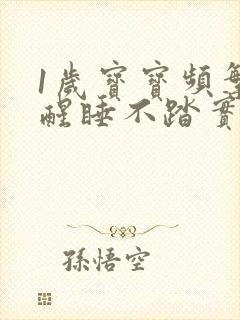 1歲寶寶頻繁
醒睡不踏實
孫悟空